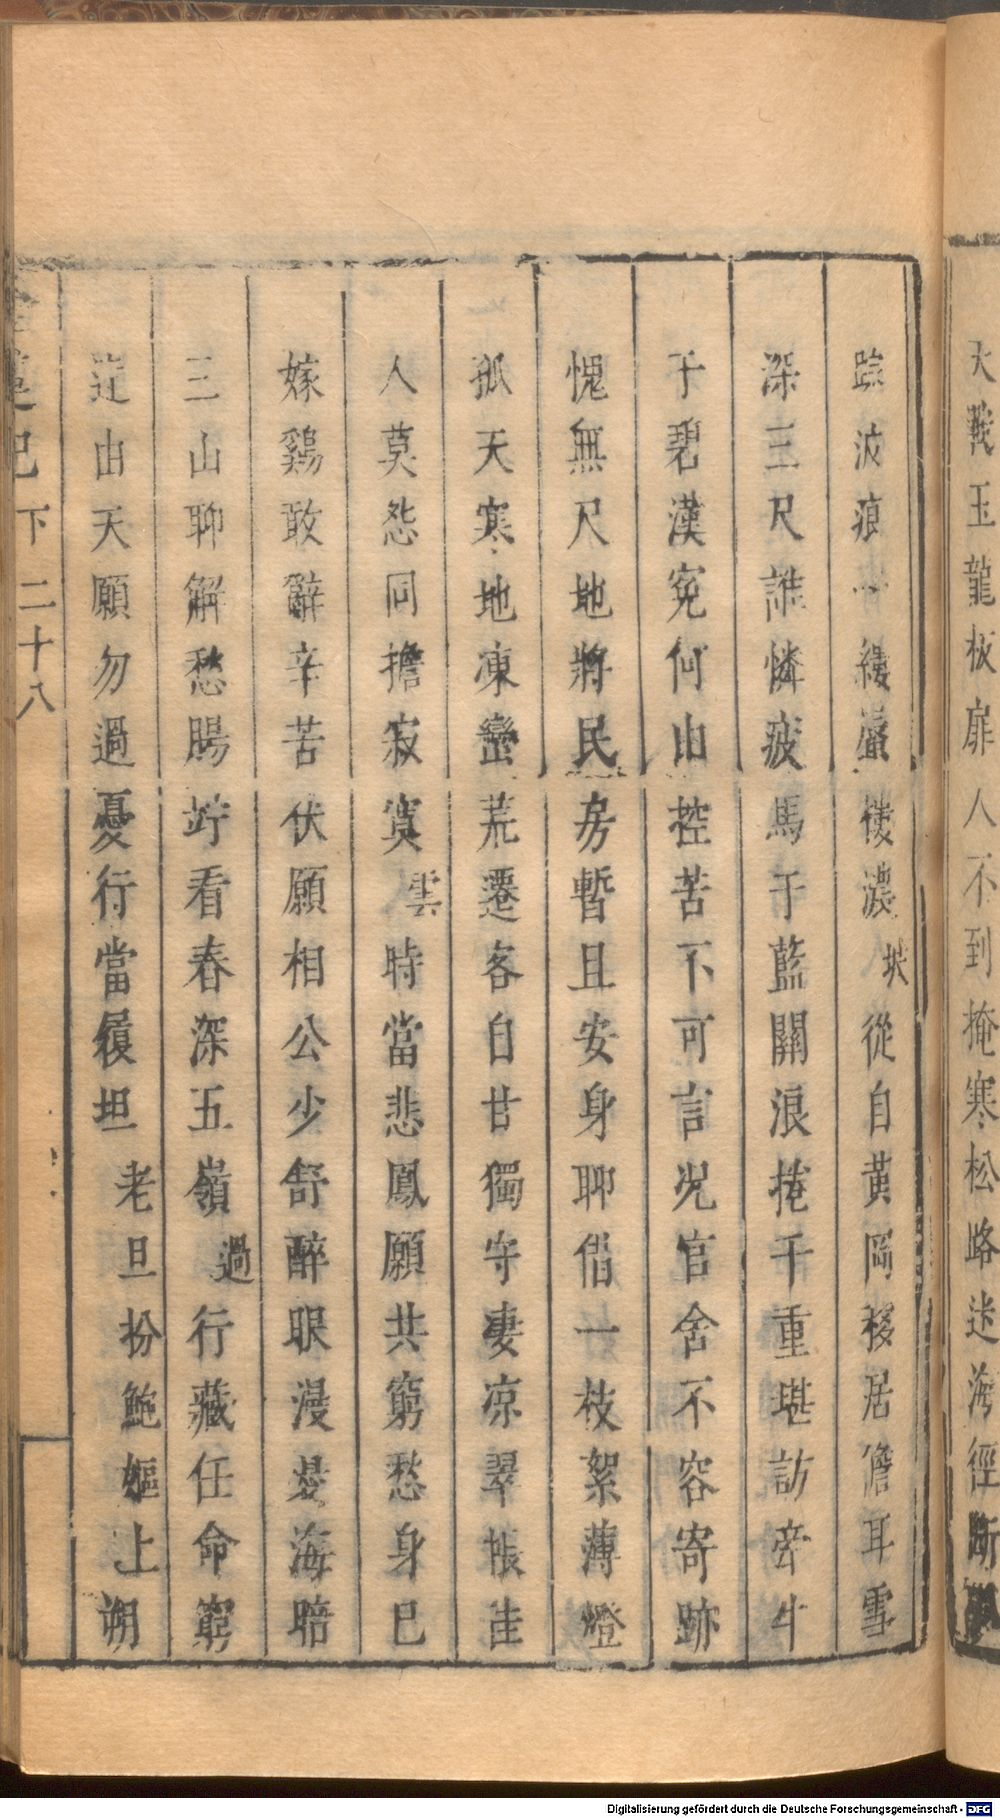 大戰玉龍板扉人不到掩寒松路迷海徑斷
踪波痕一縷蜃樓濃坡從自黃岡移居儋耳雪
深三尺誰憐疲馬于藍關浪捲千重堪訪牽牛
于碧漢寃何由控苦不可言况官舍不容寄跡
愧無尺地將民房暫且安身聊借一枝絮薄燈
孤天寒地凍蠻荒遷客自甘獨守凄凉翠帳佳
人莫怨同擔寂寞雲時當悲鳳願共窮愁身已
嫁鷄敢辭辛苦伏願相公少舒醉眼漫是海暗
三山聊解愁腸竚看春深五嶺過行藏任命窮
達由天願勿過憂行當履坦老旦扮鮑嫗上朔
記下二十八
Digitalisierung gefördert durch die Deutsche Forschungsgemeinschaft - DFG